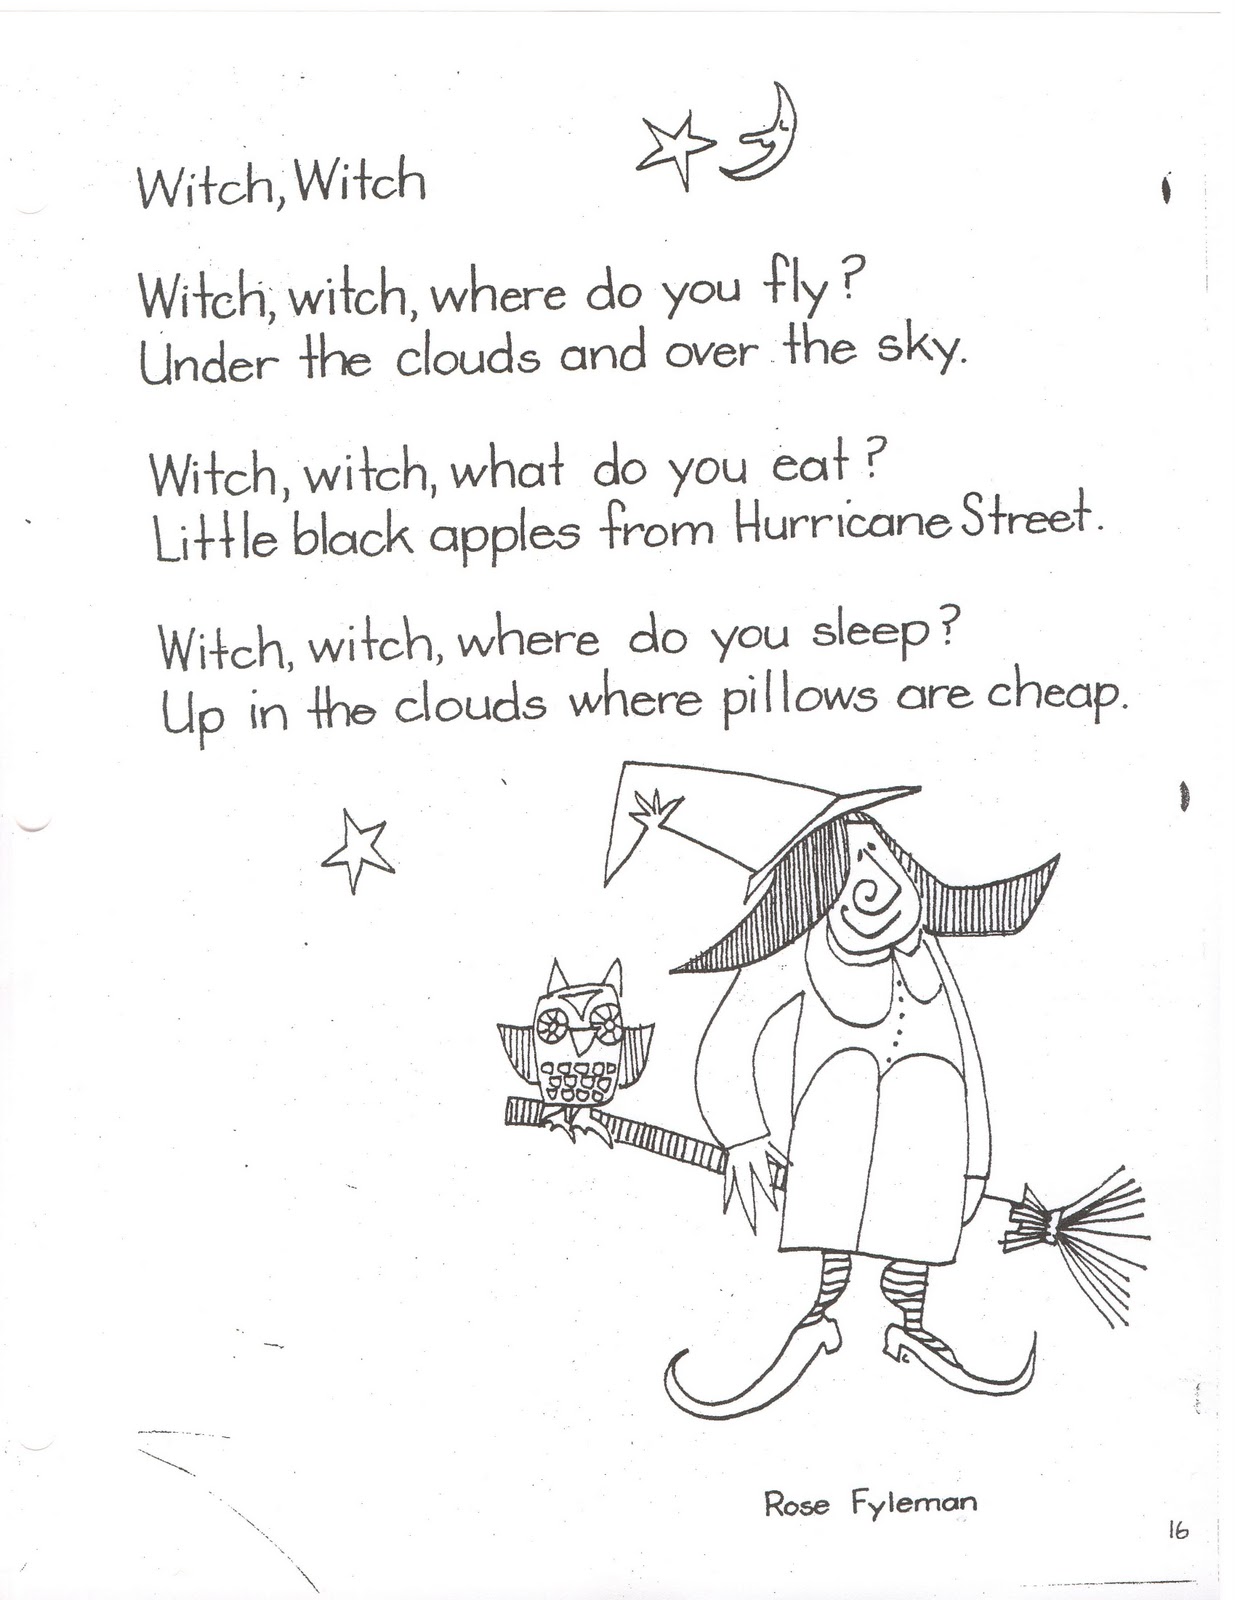 Witch, Witch
Witch, witch, where do you fly?
Under the clouds and over the sky.
Witch, witch, what do you eat?
Little black apples from Hurricane Street.
Witch, witch, where do you sleep?
Up in the clouds where pillows are cheap.
Rose Fyleman
16